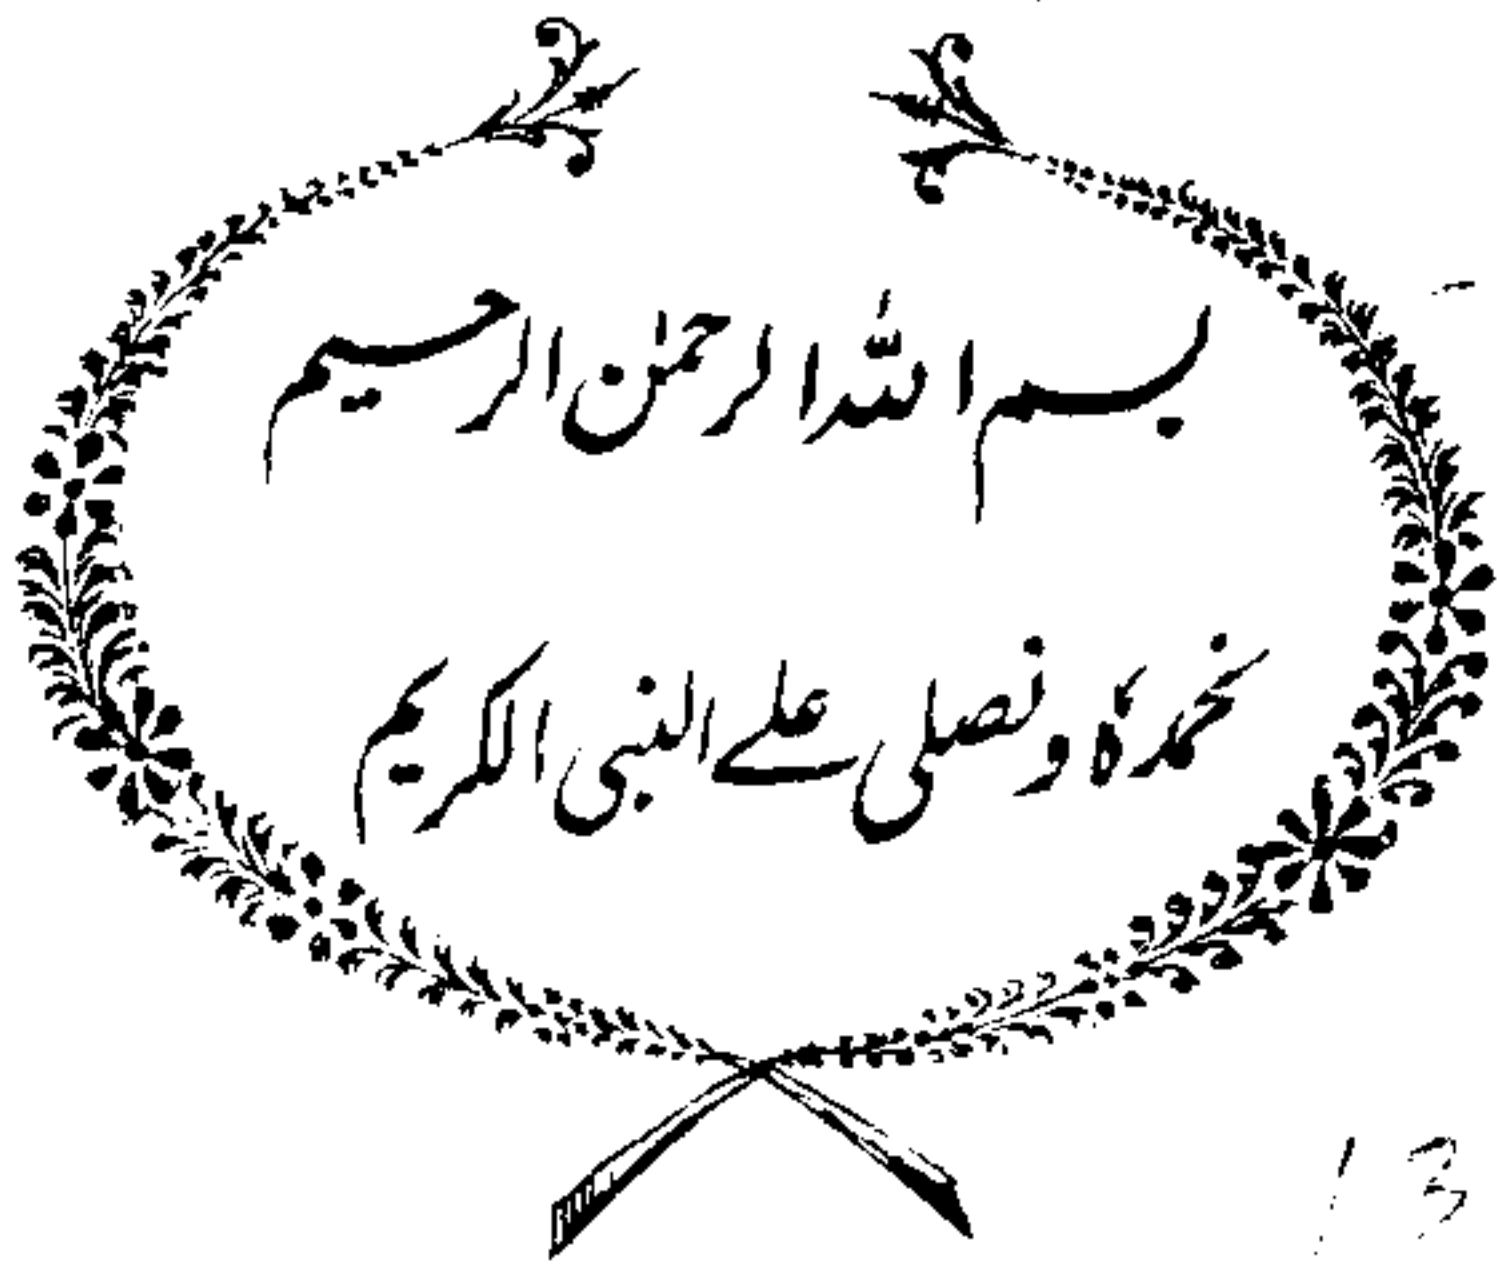 بسم اللّٰہ الرحمٰن الرحیم
نحمدہٗ و نصلی علے النبی الکریم
13